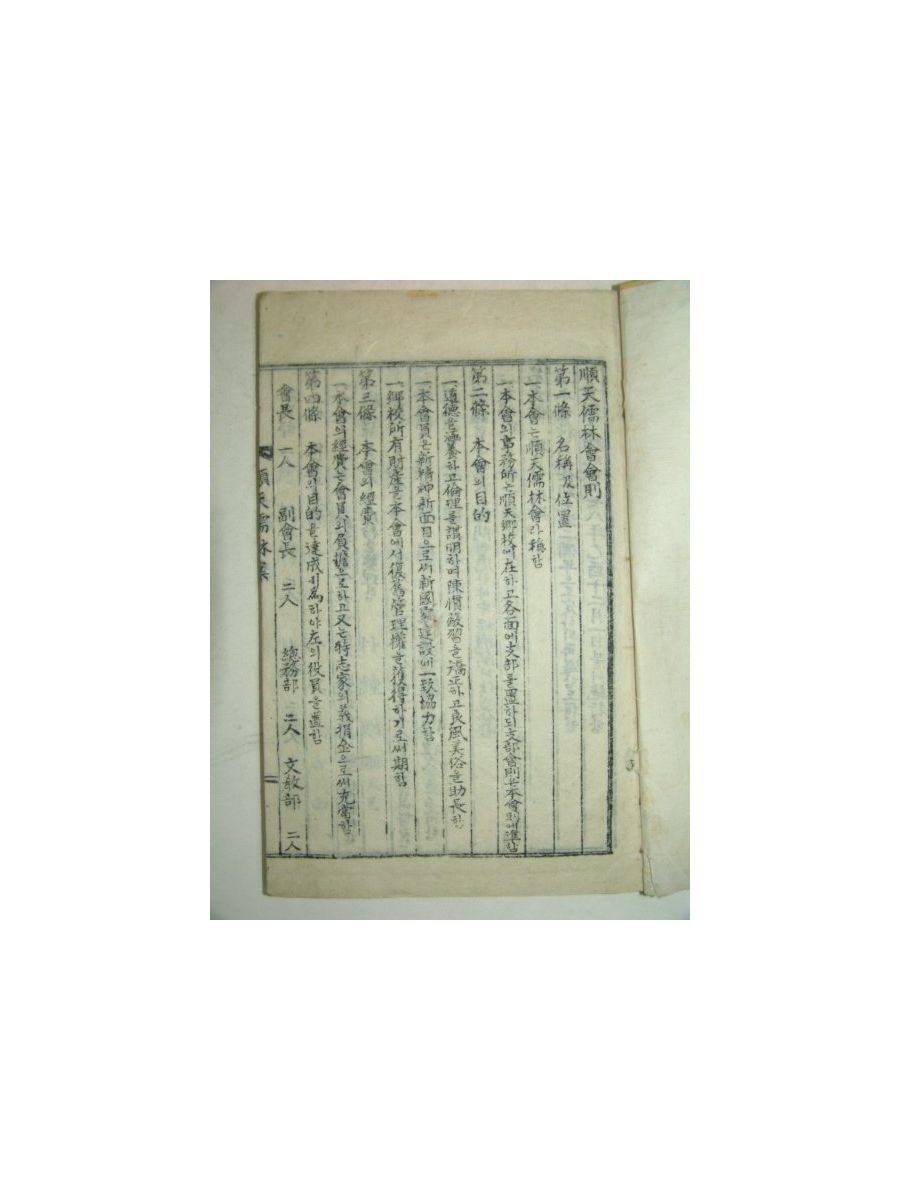 順天儒林會會則
第一條 名稱及位置
一本會는順天儒林會라稱함
一本會의事務所는順天鄕校에在하고各面에支部를置하되支部會則은本會則에準함
第二條 本會의目的
一道德을涵養하고倫理를講明하며陳慣廢習을矯正하고良風美俗을助長함
一本會員은新精神新面目으로써新國家建設에一致協力함
一鄕校所有財產을本會에서復舊管理權을獲得하기로써期함
第三條 本會의經費
一本會의經費는會員의負擔으로하고又는特志家의義捐金으로써充當함
第四條 本會의目的을達成키爲하야左의役員을置함
會長 一人 副會長 二人 總務部 二人 文敎部 二人
順天儒林案